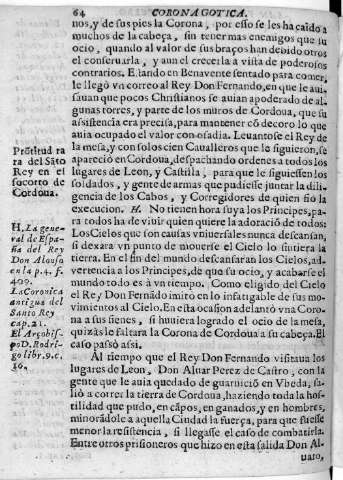 64 CORONA GOTICA.
nos, y de sus pies la Corona, por esso se les ha caido a
muchos de la cabeça, sin tener mas enemigos que su
ocio, quando al valor de sus braços han debido otros
el conseruarla, y aun el crecerla a vista de poderosos
contrarios. Estando en Benavente sentado para comer,
le llegò vn correo al Rey Don Fernando, en que le aui-
sauan que pocos Christianos se auian apoderado de al-
gunas torres, y parte de los muros de Cordoua, que su
assistencia era precisa, para mantener cõ decoro lo que
auia ocupado el valor con osadia. Leuantose el Rey de
la mesa, y con solos cien Caualleros que le siguieron, se
apareciò en Cordoua, despachando ordenes a todos los
lugares de Leon, y Castilla, para que le siguiessen los
soldados, y gente de armas que pudiesse juntar la dili-
gencia de los Cabos, y Corregidores de quien fiò la
execucion. H. No tienen hora suya los Principes, pa-
ra todos ha de viuir quien quiere la adoraciõ de todos:
Los Cielos que son causas vniuersales nunca descansan,
si dexara vn punto de mouerse el Cielo lo sintiera la
tierra. En el fin del mundo descansaràn los Cielos, ad-
vertencia a los Principes, de que su ocio, y acabarse el
mundo todo es à vn tiempo. Como eligido del Cielo
el Rey Don Fernãdo imitò en lo infatigable de sus mo-
vimientos al Cielo. En esta ocasion adelantò vna Coro-
na a sus sienes, si huuiera logrado el ocio de la mesa,
quizàs le faltara la Corona de Cordoua a su cabeça. El
caso passò assi.
Al tiempo que el Rey Don Fernando visitaua los
lugares de Leon, Don Aluar Perez de Castro, con la
gente que le auia quedado de guarniciõ en Vbeda, sa-
liò a correr la tierra de Cordoua, haziendo toda la hos-
tilidad que pudo, en cãpos, en ganados, y en hombres,
minorãdole a aquella Ciudad la fuerça, para que fuesse
menor la resistencia, si llegasse el caso de combatirla.
Entre otros prisioneros que hizo en esta salida Don Al-
uaro,
Prõtitud ra
ra del Sãto
Rey en el
socorro de
Cordoua.
H. La gene-
ral de Espa-
ña del Rey
Don Alonso
en la p. 4. f.
400.
La Coronica
antigua del
Santo Rey
cap. 21.
El Arçobis-
po D. Rodri-
go libr. 9. c.
16.